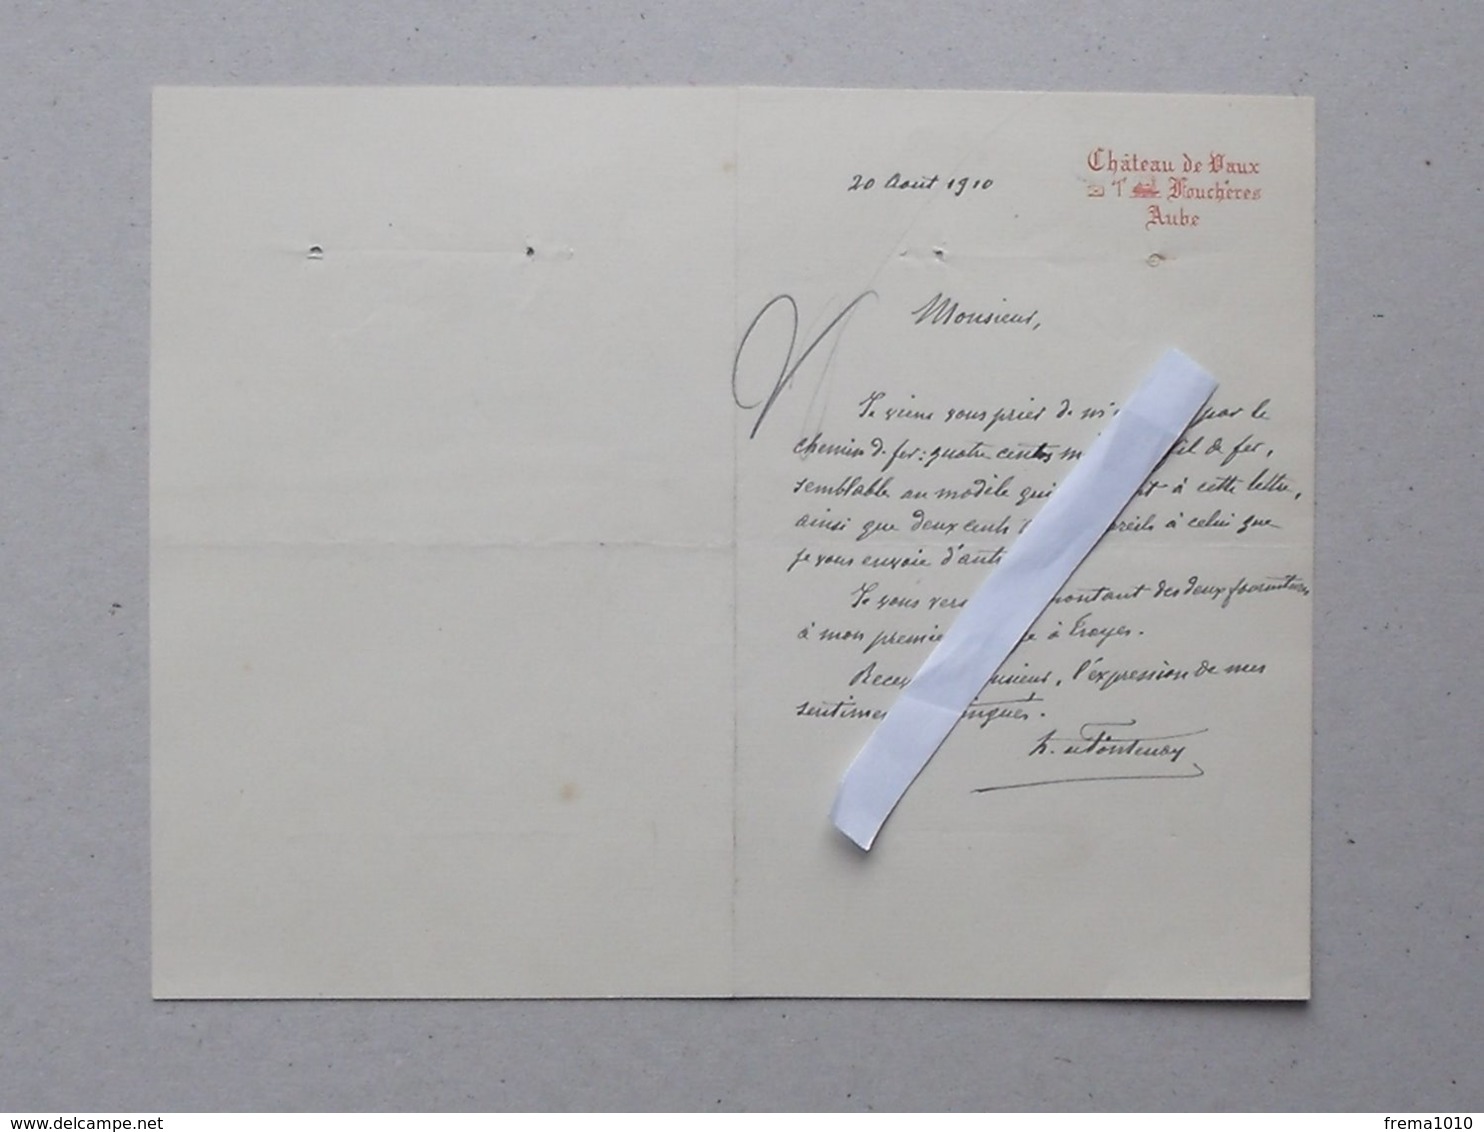 Château de Vaux
T Fouchères
Aube
20 Août 1910
Monsieur,
Je viens vous prier de m' par le
chemin de fer : quatre cents fil de fer,
semblable au modèle qui à cette lettre,
ainsi que deux cents à celui que
je vous envoie d'
Je vous montant des deux fournitures
à mon à Troyes.
l'expression de mes
h. de Fontenay
delcampe.net
frema1010